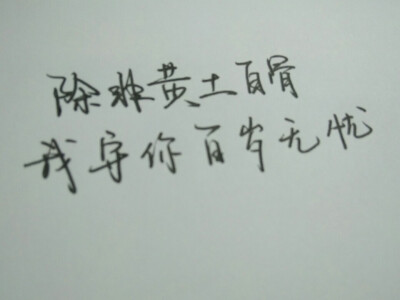 除非黄土百骨
我守你百岁无忧